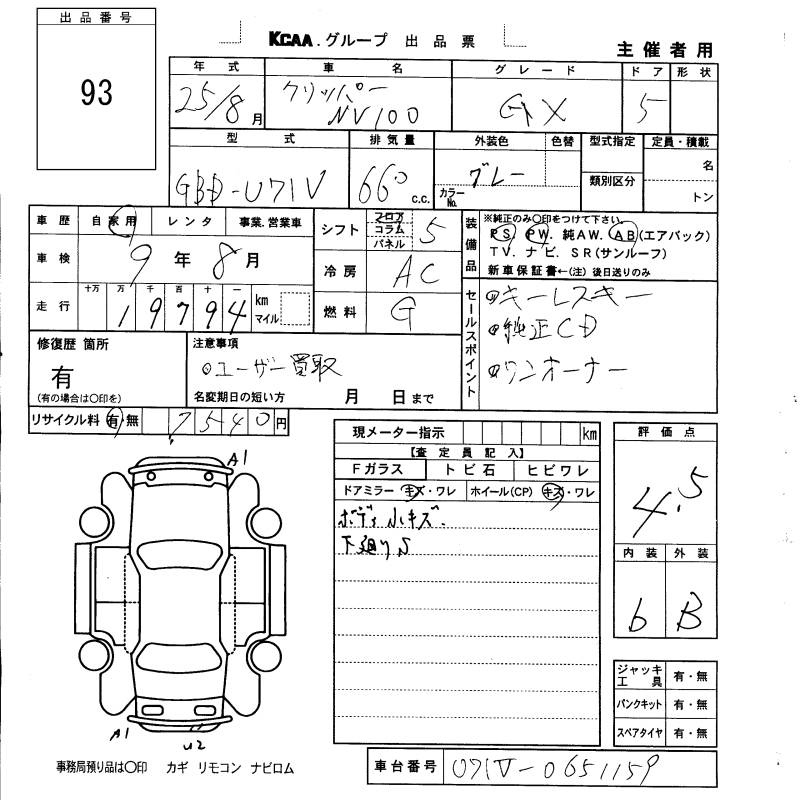 出品番号
93
KCAA.グループ 出品票
主催者用
年式 車名 グレード ドア 形状
25/8月 クリッパー NV100 GX 5
型式 排気量 外装色 色替 型式指定 定員・積載
GBD-U71V 660 c.c. グレー カラーNo. 類別区分 名
トン
車歴 自家用 レンタ 事業.営業車
シフト フロア コラム パネル 5
装備品 ※純正のみ〇印をつけて下さい。
PS. PW. 純AW. AB(エアバック)
TV. ナビ. SR(サンルーフ)
新車保証書←(注) 後日送りのみ
車検 9年8月
冷房 AC
走行 十万 万 千 百 十 一
19794 km マイル
燃料 G
セールスポイント
◎キーレスキー
◎純正CD
◎ワンオーナー
修復歴 箇所
有
(有の場合は〇印を)
注意事項
◎ユーザー買取
名変期日の短い方 月 日まで
リサイクル料 有・無 7540円
現メーター指示 km
【査定員記入】
Fガラス トビ石 ヒビワレ
ドアミラー キズ・ワレ ホイール(CP) キズ・ワレ
ボディ小キズ.
下廻りS
評価点
4.5
内装 外装
b B
A1
A1
U2
ジャッキ工具 有・無
パンクキット 有・無
スペアタイヤ 有・無
事務局預り品は〇印 カギ リモコン ナビロム
車台番号 U71V-0651159